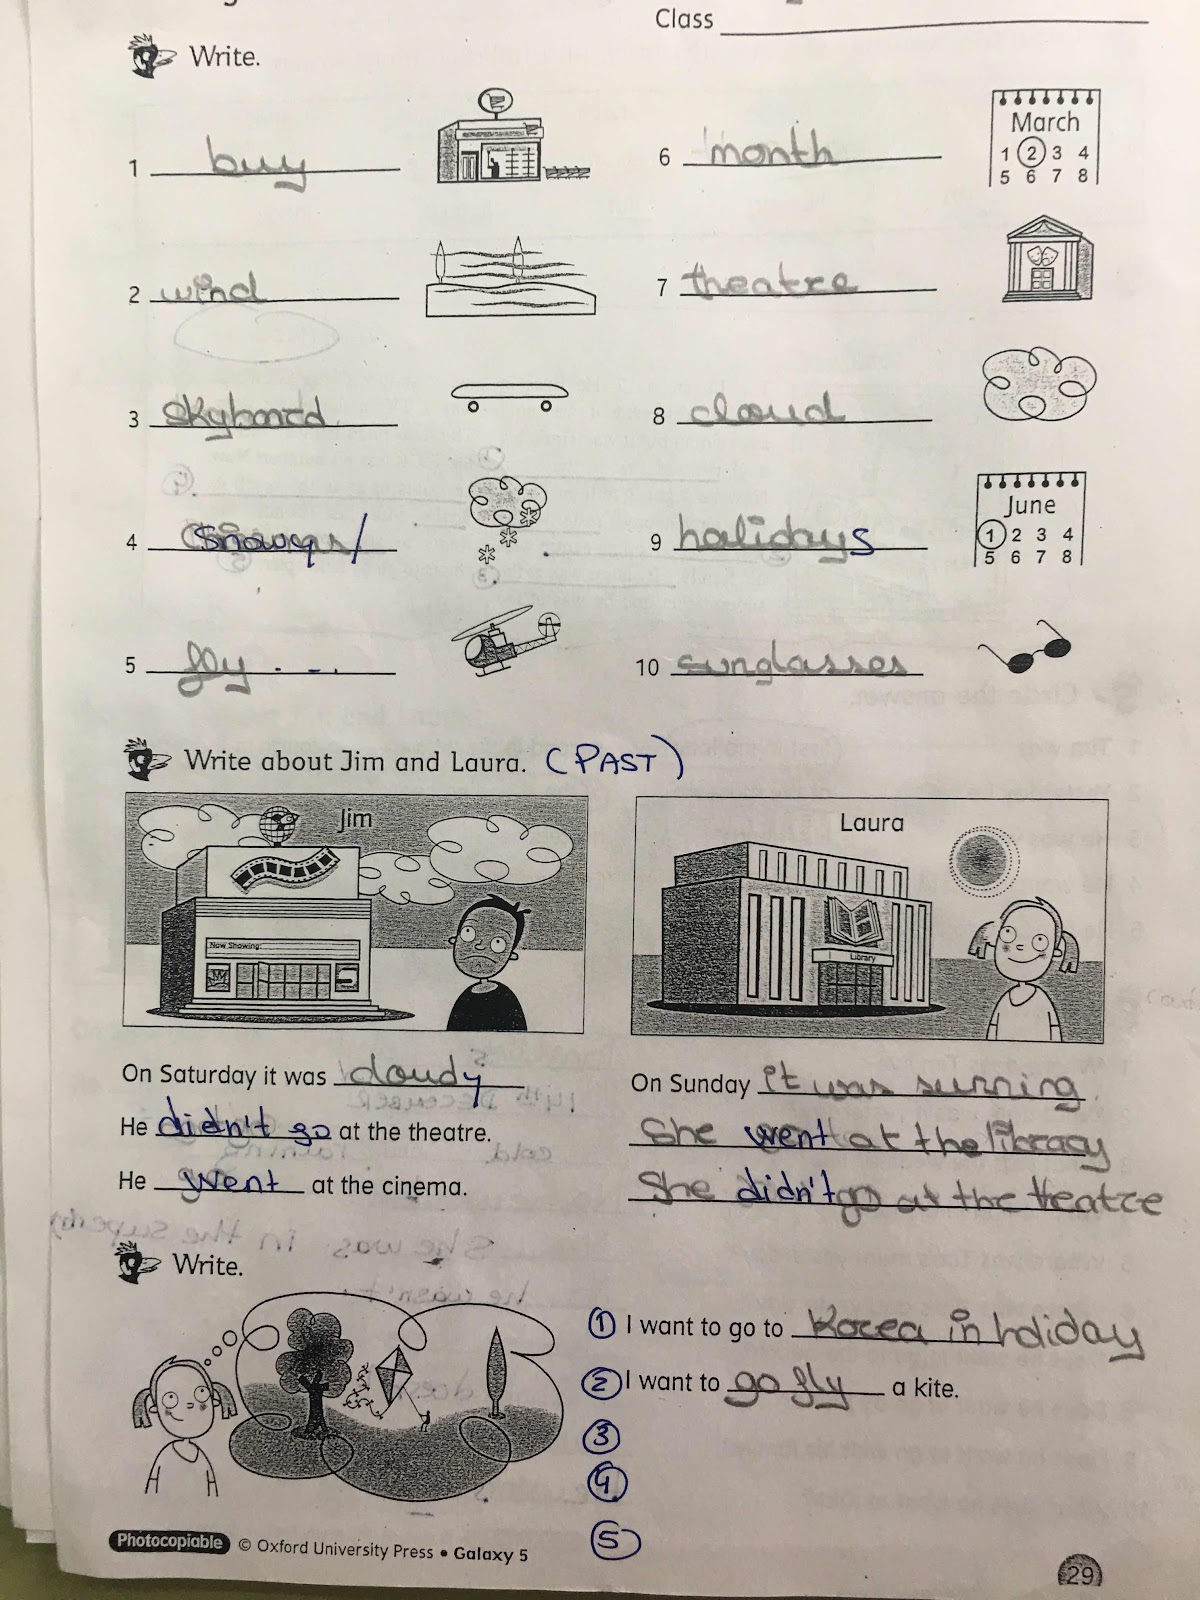 Class
Write.
1 buy
6 month
March
1 2 3 4
5 6 7 8
2 wind
7 theatre
3 skyboard
8 cloud
4
9 holidays
June
1 2 3 4
5 6 7 8
5 fly
10 sunglasses
Write about Jim and Laura. (PAST)
Jim
Now Showing:
Laura
Library
On Saturday it was cloudy
He didn't go at the theatre.
He went at the cinema.
On Sunday it was sunning
She went at the library
She didn't go at the teatre
Write.
1 I want to go to Korea in holiday
2 I want to go fly a kite.
3
4
5
Photocopiable © Oxford University Press • Galaxy 5
29